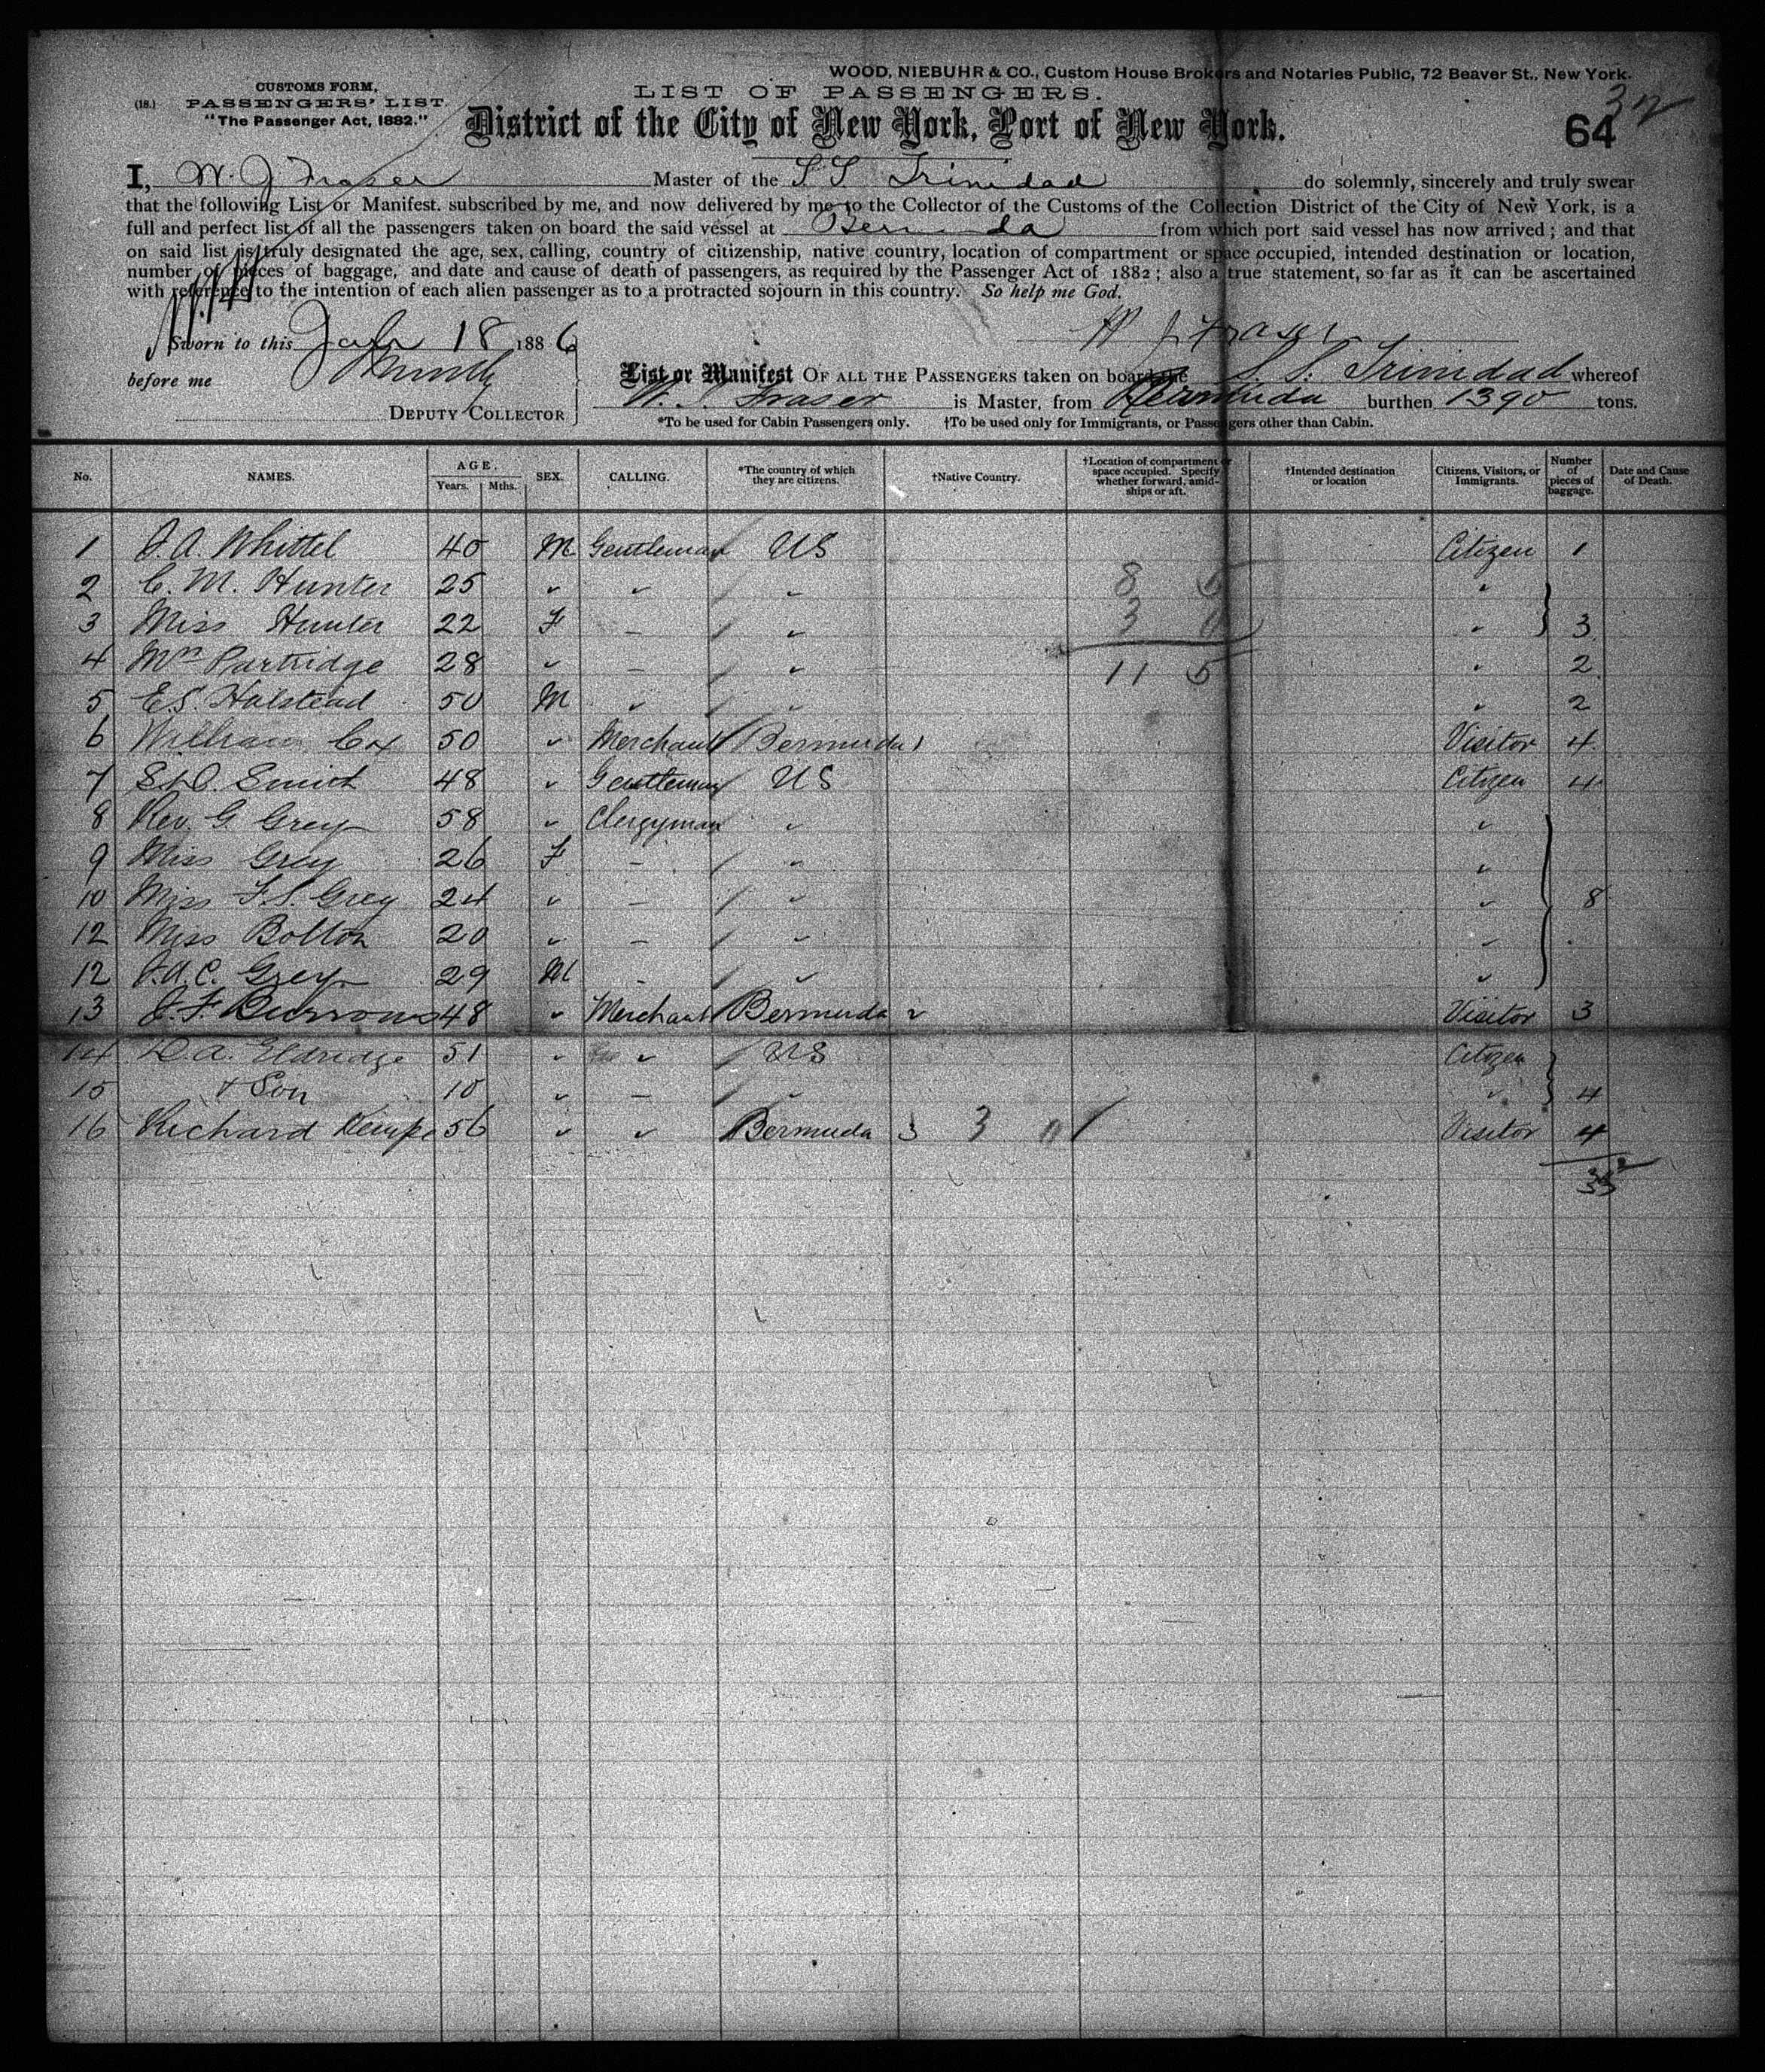 WOOD, NIEBUHR & CO., Custom House Brokers and Notaries Public, 72 Beaver St., New York.
CUSTOMS FORM,
LIST OF PASSENGERS.
(18.) PASSENGERS' LIST.
"The Passenger Act, 1882."
District of the City of New York, Port of New York.
64
I, W. J. Fraser Master of the S S Trinidad do solemnly, sincerely and truly swear
that the following List or Manifest. subscribed by me, and now delivered by me to the Collector of the Customs of the Collection District of the City of New York, is a
full and perfect list of all the passengers taken on board the said vessel at Bermuda from which port said vessel has now arrived; and that
on said list is truly designated the age, sex, calling, country of citizenship, native country, location of compartment or space occupied, intended destination or location,
number of pieces of baggage, and date and cause of death of passengers, as required by the Passenger Act of 1882; also a true statement, so far as it can be ascertained
with reference to the intention of each alien passenger as to a protracted sojourn in this country. So help me God.
W J Fraser
Sworn to this Jany 18 1886
before me
List or Manifest OF ALL THE PASSENGERS taken on board the S. S. Trinidad whereof
W. J. Fraser is Master, from Bermuda burthen 1390 tons.
DEPUTY COLLECTOR
*To be used for Cabin Passengers only. †To be used only for Immigrants, or Passengers other than Cabin.
No. NAMES. AGE. Years. Mths. SEX. CALLING. *The country of which they are citizens. †Native Country. †Location of compartment or space occupied. Specify whether forward, amidships or aft. †Intended destination or location Citizens, Visitors, or Immigrants. Number of pieces of baggage. Date and Cause of Death.
1 J. A. Whittel 40 M Gentleman US Citizen 1
2 C. M. Hunter 25 " " " 8 5 "
3 Miss Hunter 22 F – " 3 0 " 3
4 Mrs Partridge 28 " – " 11 5 " 2
5 E. S. Halstead 50 M " " " 2
6 William Cox 50 " Merchant Bermuda 1 Visitor 4
7 Smith 48 " Gentleman US Citizen 4
8 Rev. G. Grey 58 " Clergyman " "
9 Miss Grey 26 F – " "
10 Miss F. S. Grey 24 " – " " 8
12 Miss Bolton 20 " – " "
12 J. A. C. Grey 29 M – " "
13 J. F. Burrows 48 " Merchant Bermuda 2 Visitor 3
14 D. A. Eldridge 51 " " US Citizen
15 & Son 10 " – " " 4
16 Richard Kempe 56 " " Bermuda 3 3 0 Visitor 4